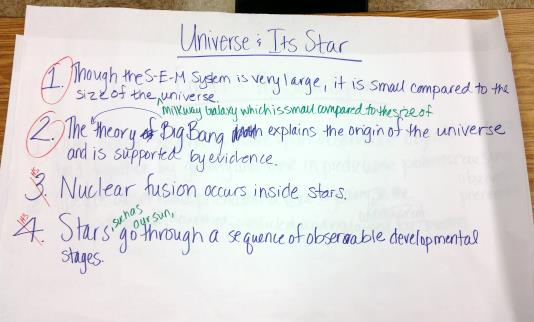 Universe & Its Star
1. Though the S-E-M System is very large, it is small compared to the
size of the universe.
milkyway Galaxy which is small compared to the size of
2. The theory of Big Bang explains the origin of the universe
and is supported by evidence.
3. Nuclear fusion occurs inside stars.
such as
our sun,
4. Stars, go through a sequence of observable developmental
stages.